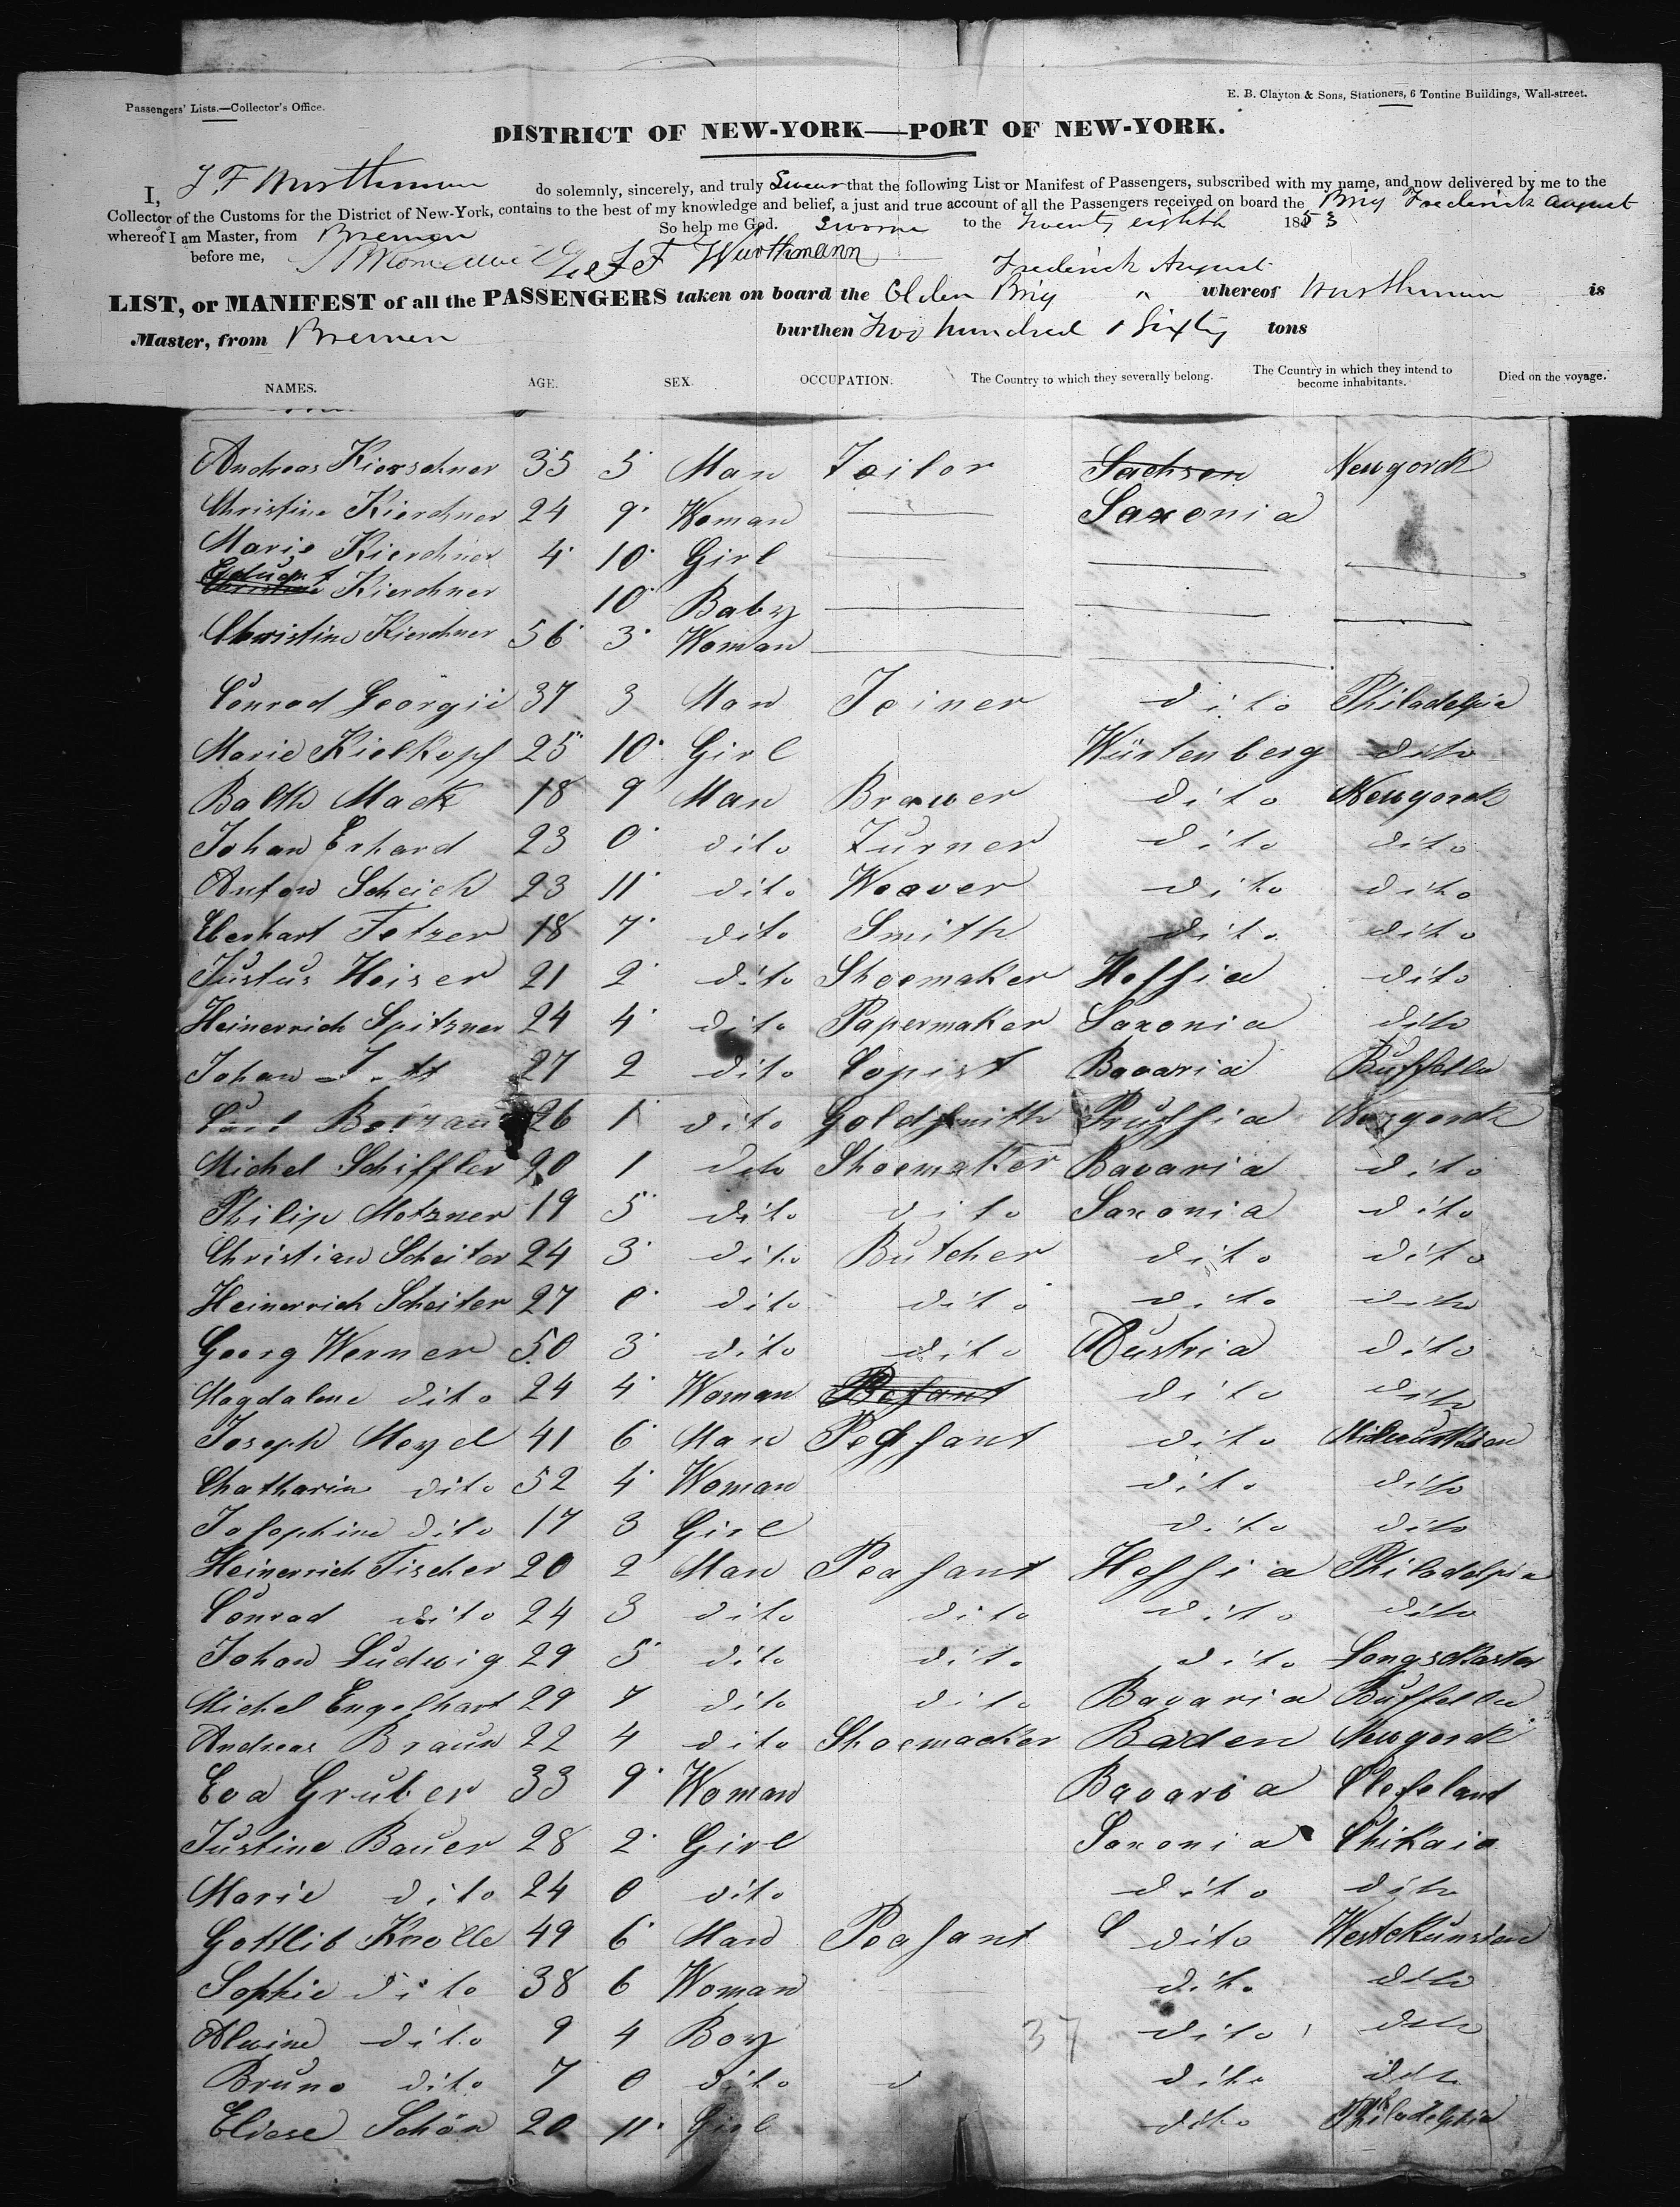 Passengers' Lists.—Collector's Office.
E. B. Clayton & Sons, Stationers, 6 Tontine Buildings, Wall-street.
DISTRICT OF NEW-YORK—PORT OF NEW-YORK.
I, J. F. Wurthmann do solemnly, sincerely, and truly Swear that the following List or Manifest of Passengers, subscribed with my name, and now delivered by me to the
Collector of the Customs for the District of New-York, contains to the best of my knowledge and belief, a just and true account of all the Passengers received on board the Brig Frederick August
whereof I am Master, from Bremen So help me God. Sworn to the Twenty eighth 1853
before me, J F Wurthmann
Frederick August
LIST, or MANIFEST of all the PASSENGERS taken on board the Olden Brig " whereof Wurthmann is
Master, from Bremen burthen Two hundred & Sixty tons
NAMES. AGE. SEX. OCCUPATION. The Country to which they severally belong. The Country in which they intend to become inhabitants. Died on the voyage.
Andreas Kierschner 35 5 Man Teilor Sachsen Newyorck
Christine Kierchner 24 9 Woman — Saxonia
Marie Kierchner 4 10 Girl — — —
Eduart Kierchner 10 Baby — — —
Christine Kierchner 56 3 Woman — —
Conrad Georgii 37 3 Man Joiner dito Philadelpia
Marie Kielkopf 25 10 Girl Würtenberg dito
Balth Mack 18 9 Man Brauer dito Newyorck
Johan Erhard 23 0 dito Turner dito dito
Anton Scheich 23 11 dito Weaver dito dito
Eberhart Fetzer 18 7 dito Smith dito dito
Justus Heiser 21 2 dito Shoemaker Hessia dito
Heinerrich Spitzner 24 4 dito Papermaker Saxonia dito
Johan 27 2 dito Copist Bavaria Buffello
Carl 26 1 dito Goldsmith Prussia Newyorck
Michel Schiffler 20 1 dito Shoemaker Bavaria dito
Philip Motzner 19 5 dito dito Saxonia dito
Christian Scheiter 24 3 dito Butcher dito dito
Heinerrich Scheiter 27 0 dito dito dito dito
Georg Werner 50 3 dito dito Austria dito
Magdalene dito 24 4 Woman Pesant dito dito
Joseph Meyd 41 6 Man Peasant dito
Chatharin dito 52 4 Woman dito dito
Josophine dito 17 3 Girl dito dito
Heinerrich Fischer 20 2 Man Peasant Hessia Philadelpia
Conrad dito 24 3 dito dito dito dito
Johan Ludwig 29 5 dito dito dito Longskaster
Michel Engelhart 29 7 dito dito Bavaria Buffello
Andreas Braun 22 4 dito Shoemacker Baden Newyorck
Eva Gruber 33 9 Woman Bavaria Clefeland
Justine Bauer 28 2 Girl Saxonia Chikaio
Marie dito 24 0 dito dito dito
Gottlib Knolle 49 6 Man Peasant dito
Sophie dito 38 6 Woman dito dito
Alwine dito 9 4 Boy 37 dito dito
Bruno dito 7 0 dito dito dito
Eliese Schön 20 11 Girl dito Philadelphia